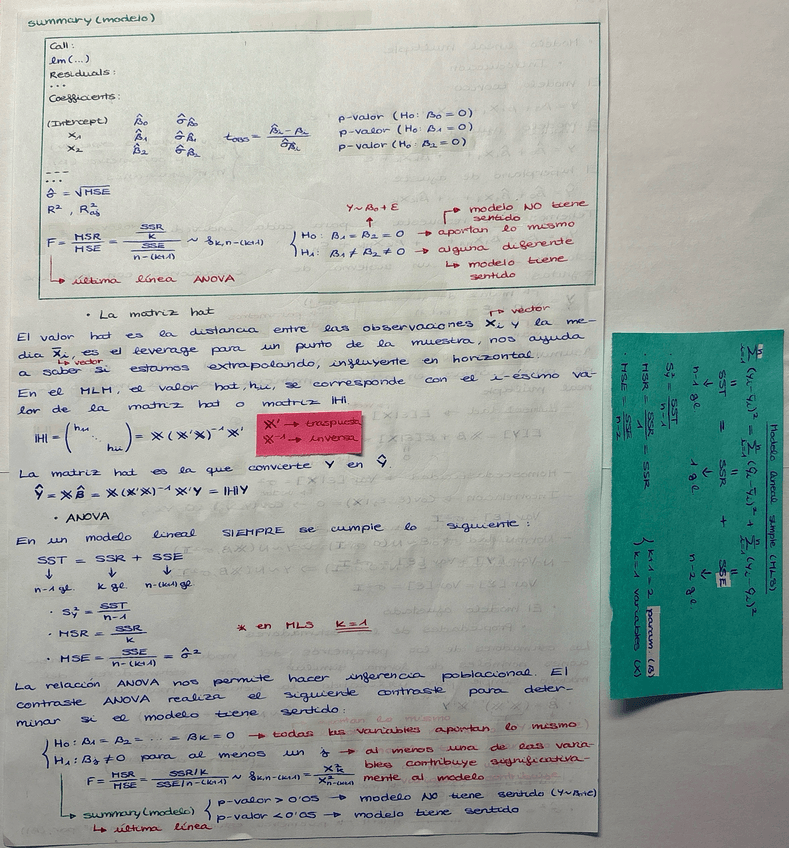 summary(modelo)
Call:
lm(...)
Residuals:
...
Coefficients:
(Intercept) β̂₀ σ̂β̂₀ p-valor (H₀: β₀ = 0)
x₁ β̂₁ σ̂β̂₁ t_OBS = (β̂ᵢ - βᵢ) / σ̂β̂ᵢ p-valor (H₀: β₁ = 0)
x₂ β̂₂ σ̂β̂₂ p-valor (H₀: β₂ = 0)
----
...
σ̂ = √MSE
R², R²aj
Y ~ β₀ + E
modelo NO tiene sentido
F = MSR/MSE = (SSR/k) / (SSE/(n-(k+1))) ~ F k, n-(k+1)
H₀: β₁ = β₂ = 0 → aportan lo mismo
H₁: β₁ ≠ β₂ ≠ 0 → alguna diferente
↳ modelo tiene sentido
↳ última línea ANOVA
· La matriz hat
El valor hat es la distancia entre las observaciones xᵢ y la me-
→ vector
dia x̄ᵢ, es el leverage para un punto de la muestra, nos ayuda
↳ vector
a saber si estamos extrapolando, influyente en horizontal.
En el MLM, el valor hat, hᵢᵢ, se corresponde con el i-ésimo va-
lor de la matriz hat o matriz ℍ.
ℍ = (h₁₁ ⋱ hᵢᵢ) = 𝕏(𝕏'𝕏)⁻¹𝕏'
𝕏' → traspuesta
𝕏⁻¹ → inversa
La matriz hat es la que convierte Y en Ŷ.
Ŷ = 𝕏β̂ = 𝕏(𝕏'𝕏)⁻¹𝕏'Y = ℍY
· ANOVA
En un modelo lineal SIEMPRE se cumple lo siguiente:
SST = SSR + SSE
↓ ↓ ↓
n-1 gl k gl n-(k+1) gl
· S²y = SST/(n-1)
· MSR = SSR/k
* en MLS k=1
· MSE = SSE/(n-(k+1)) = σ̂²
La relación ANOVA nos permite hacer inferencia poblacional. El
contraste ANOVA realiza el siguiente contraste para deter-
minar si el modelo tiene sentido:
H₀: β₁ = β₂ = ... = βk = 0 → todas las variables aportan lo mismo
H₁: βj ≠ 0 para al menos un j → al menos una de las varia-
bles contribuye significativa-
mente al modelo
F = MSR/MSE = (SSR/k) / (SSE/n-(k+1)) ~ F k, n-(k+1) = χ²k / χ²n-(k+1)
↳ summary(modelo) { p-valor > 0'05 → modelo NO tiene sentido (Y~β₀+E)
p-valor < 0'05 → modelo tiene sentido
↳ última línea
Modelo lineal simple (MLS)
Σⁿᵢ₌₁ (yᵢ - ȳᵢ)² = Σⁿᵢ₌₁ (ŷᵢ - ȳᵢ)² + Σⁿᵢ₌₁ (yᵢ - ŷᵢ)²
SST = SSR + SSE
↓ ↓ ↓
n-1 gl 1 gl n-2 gl
· S²y = SST/(n-1)
· MSR = SSR/1 = SSR
· MSE = SSE/(n-2)
{ k+1 = 2 param (β)
k = 1 variables (X)